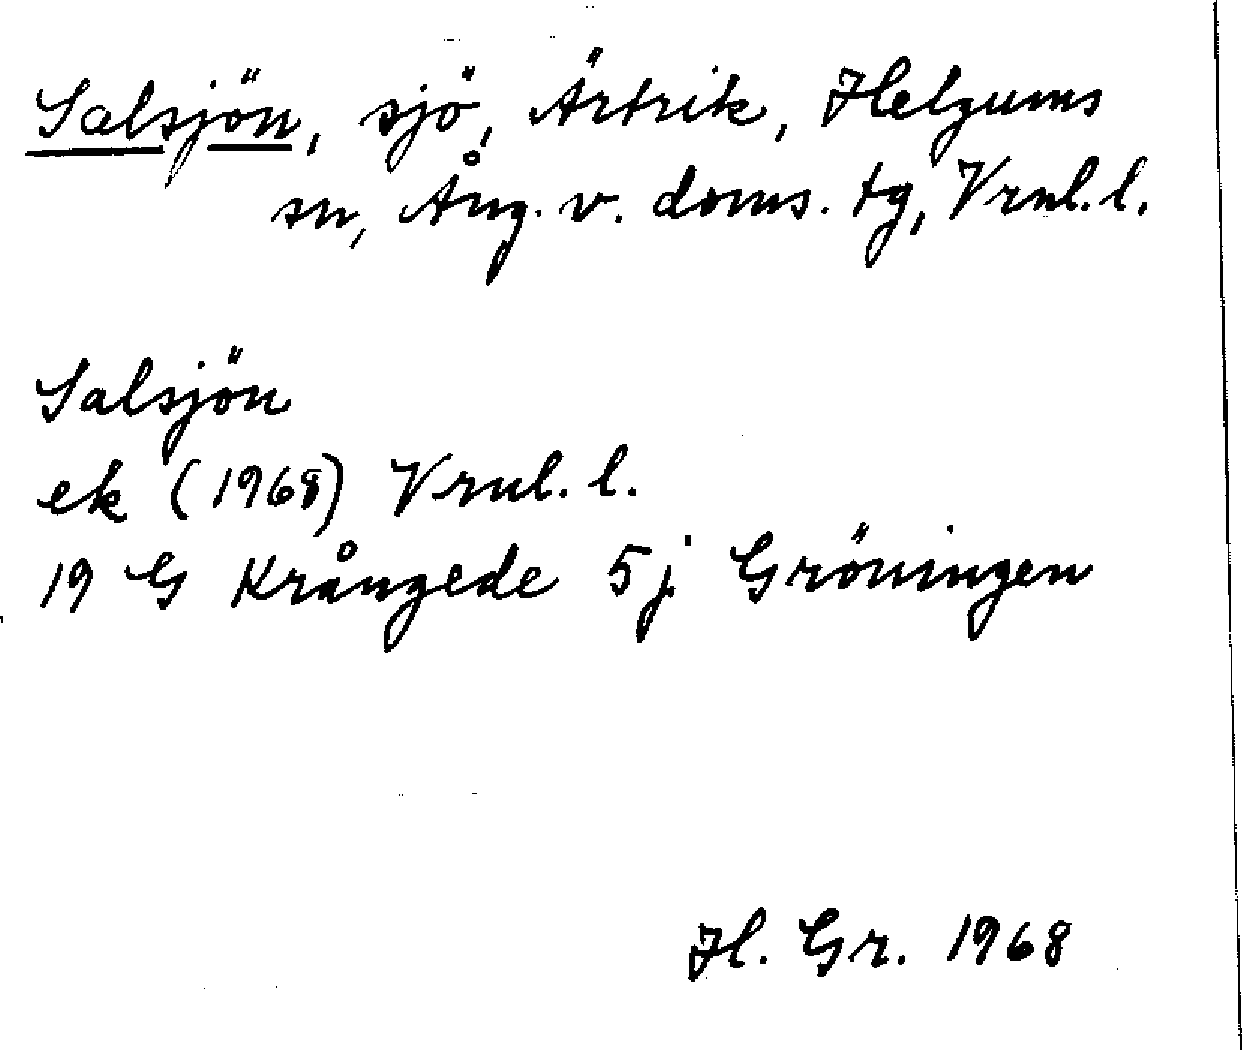 Salsjön, sjö, Ärtrik, Helgums
sn, Ång. v. doms. tg, Vrnl. l.
Salsjön
ek (1968) Vrnl. l.
19 G Krångede 5j Gröningen
H. Gr. 1968